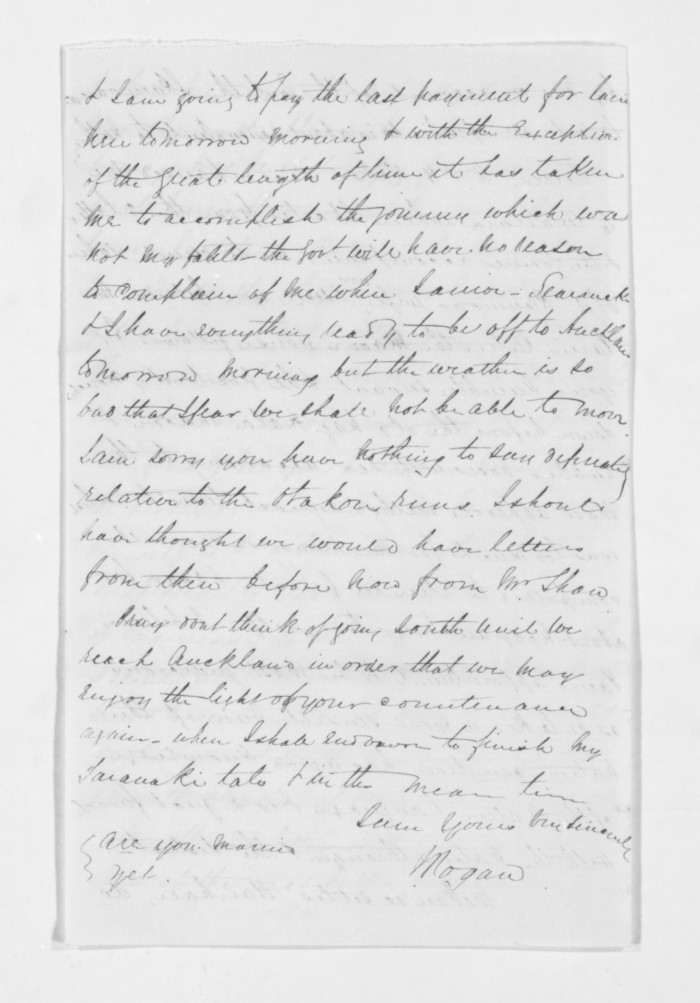 & I am going to pay the last payment for land
here tomorrow morning & with the Exception
of the great length of time it has taken
me to accomplish the journey which was
not my fault the Govt. will have no reason
to complain of me when I arrive - Searancke
& I have everything ready to be off to Auckland
tomorrow morning but the weather is so
bad that I fear we shall not be able to move
I am sorry you have nothing to say definitely
relative to the Otakou runs I should
have thought we would have letters
from there before now from Mr. Shaw
Pray dont think of going South until we
reach Auckland in order that we may
enjoy the light of your countenance
again - when I shall endeavour to finish my
Taranaki tale & in the mean time
I am Yours very sincerely
Are you married
yet.
Rogan